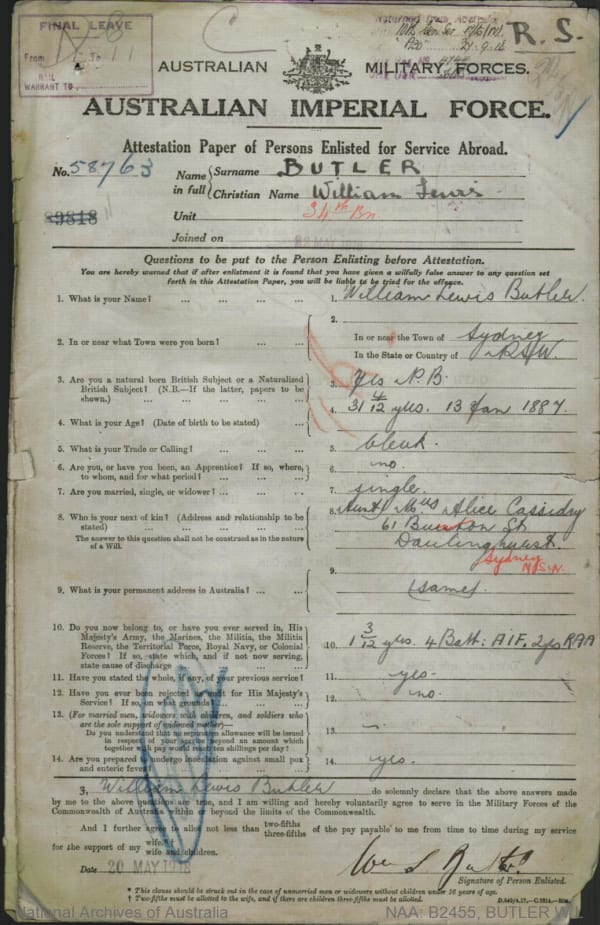 FINAL LEAVE
From To
RAIL
WARRANT TO
C
R. S.
21.9.16
AUSTRALIAN MILITARY FORCES.
AUSTRALIAN IMPERIAL FORCE.
Attestation Paper of Persons Enlisted for Service Abroad.
No. 58763
Name in full Surname BUTLER
Christian Name William Lewis
Unit 34th Bn
9818
Joined on
Questions to be put to the Person Enlisting before Attestation.
You are hereby warned that if after enlistment it is found that you have given a wilfully false answer to any question set
forth in this Attestation Paper, you will be liable to be tried for the offence.
1. What is your Name? ... ... ... ... 1. William Lewis Butler.
2. In or near what Town were you born? ... ... 2. In or near the Town of Sydney
In the State or Country of N.S.W.
3. Are you a natural born British Subject or a Naturalized
British Subject? (N.B.—If the latter, papers to be
shown.) ... ... ... ... ... 3. Yes N.B.
4. What is your Age? (Date of birth to be stated) ... 4. 31 4/12 yrs. 13 Jan 1887.
5. What is your Trade or Calling? ... ... ... 5. clerk.
6. Are you, or have you been, an Apprentice? If so, where,
to whom, and for what period? ... ... ... 6. no.
7. Are you married, single, or widower? ... ... 7. single.
8. Who is your next of kin? (Address and relationship to be
stated) ... ... ... ... 8. (Aunt) Mrs Alice Cassidy
61 Burton St
Daulinghurst.
Sydney
N.S.W.
The answer to this question shall not be construed as in the nature
of a Will.
9. What is your permanent address in Australia? ... ... 9. (same).
10. Do you now belong to, or have you ever served in, His
Majesty's Army, the Marines, the Militia, the Militia
Reserve, the Territorial Force, Royal Navy, or Colonial
Forces? If so, state which, and if not now serving,
state cause of discharge 10. 1 3/12 yrs. 4 Batt: AIF. 2yrs RAA
11. Have you stated the whole, if any, of your previous service? 11. yes.
12. Have you ever been rejected as unfit for His Majesty's
Service? If so, on what grounds? ... ... 12. no.
13. (For married men, widowers with children, and soldiers who
are the sole support of widowed mother)—
Do you understand that no separation allowance will be issued
in respect of your service beyond an amount which
together with pay would reach ten shillings per day? ... 13. —
14. Are you prepared to undergo inoculation against small pox
and enteric fever? ... ... ... ... 14. yes.
I, William Lewis Butler do solemnly declare that the above answers made
by me to the above questions are true, and I am willing and hereby voluntarily agree to serve in the Military Forces of the
Commonwealth of Australia within or beyond the limits of the Commonwealth.
And I further agree to allot not less than two-fifths three-fifths of the pay payable to me from time to time during my service
for the support of my wife. wife and children.
Date 20 MAY 1918
Wm L Butler
Signature of Person Enlisted.
* This clause should be struck out in the case of unmarried men or widowers without children under 16 years of age.
† Two-fifths must be allotted to the wife, and if there are children three-fifths must be allotted.
National Archives of Australia
NAA: B2455, BUTLER W L